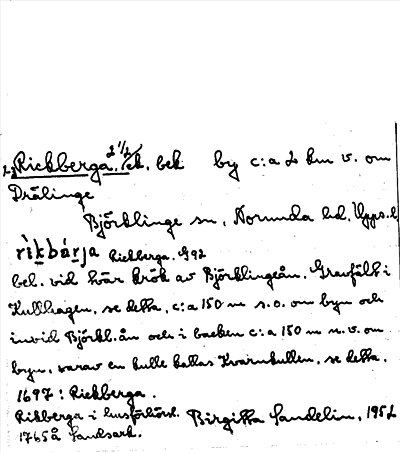 Rickberga, 2 1/2 ek. bek by c:a 2 km v. om
Drälinge
Björklinge sn, Norunda hd, Upps.l
rìkbárja Rickberga. G92
bel. vid tvär krök av Björklingeån. Gravfält i
Kullhagen, se detta, c:a 150 m s.o. om byn och
invid Björkl.ån och i backen c:a 150 m n.v. om
byn, varav en kulle kallas Kvarnkullen, se detta.
1697: Rickberga.
Rikberga i husförhörsl.
1765 å Landsark.
Birgitta Sandelin, 1952